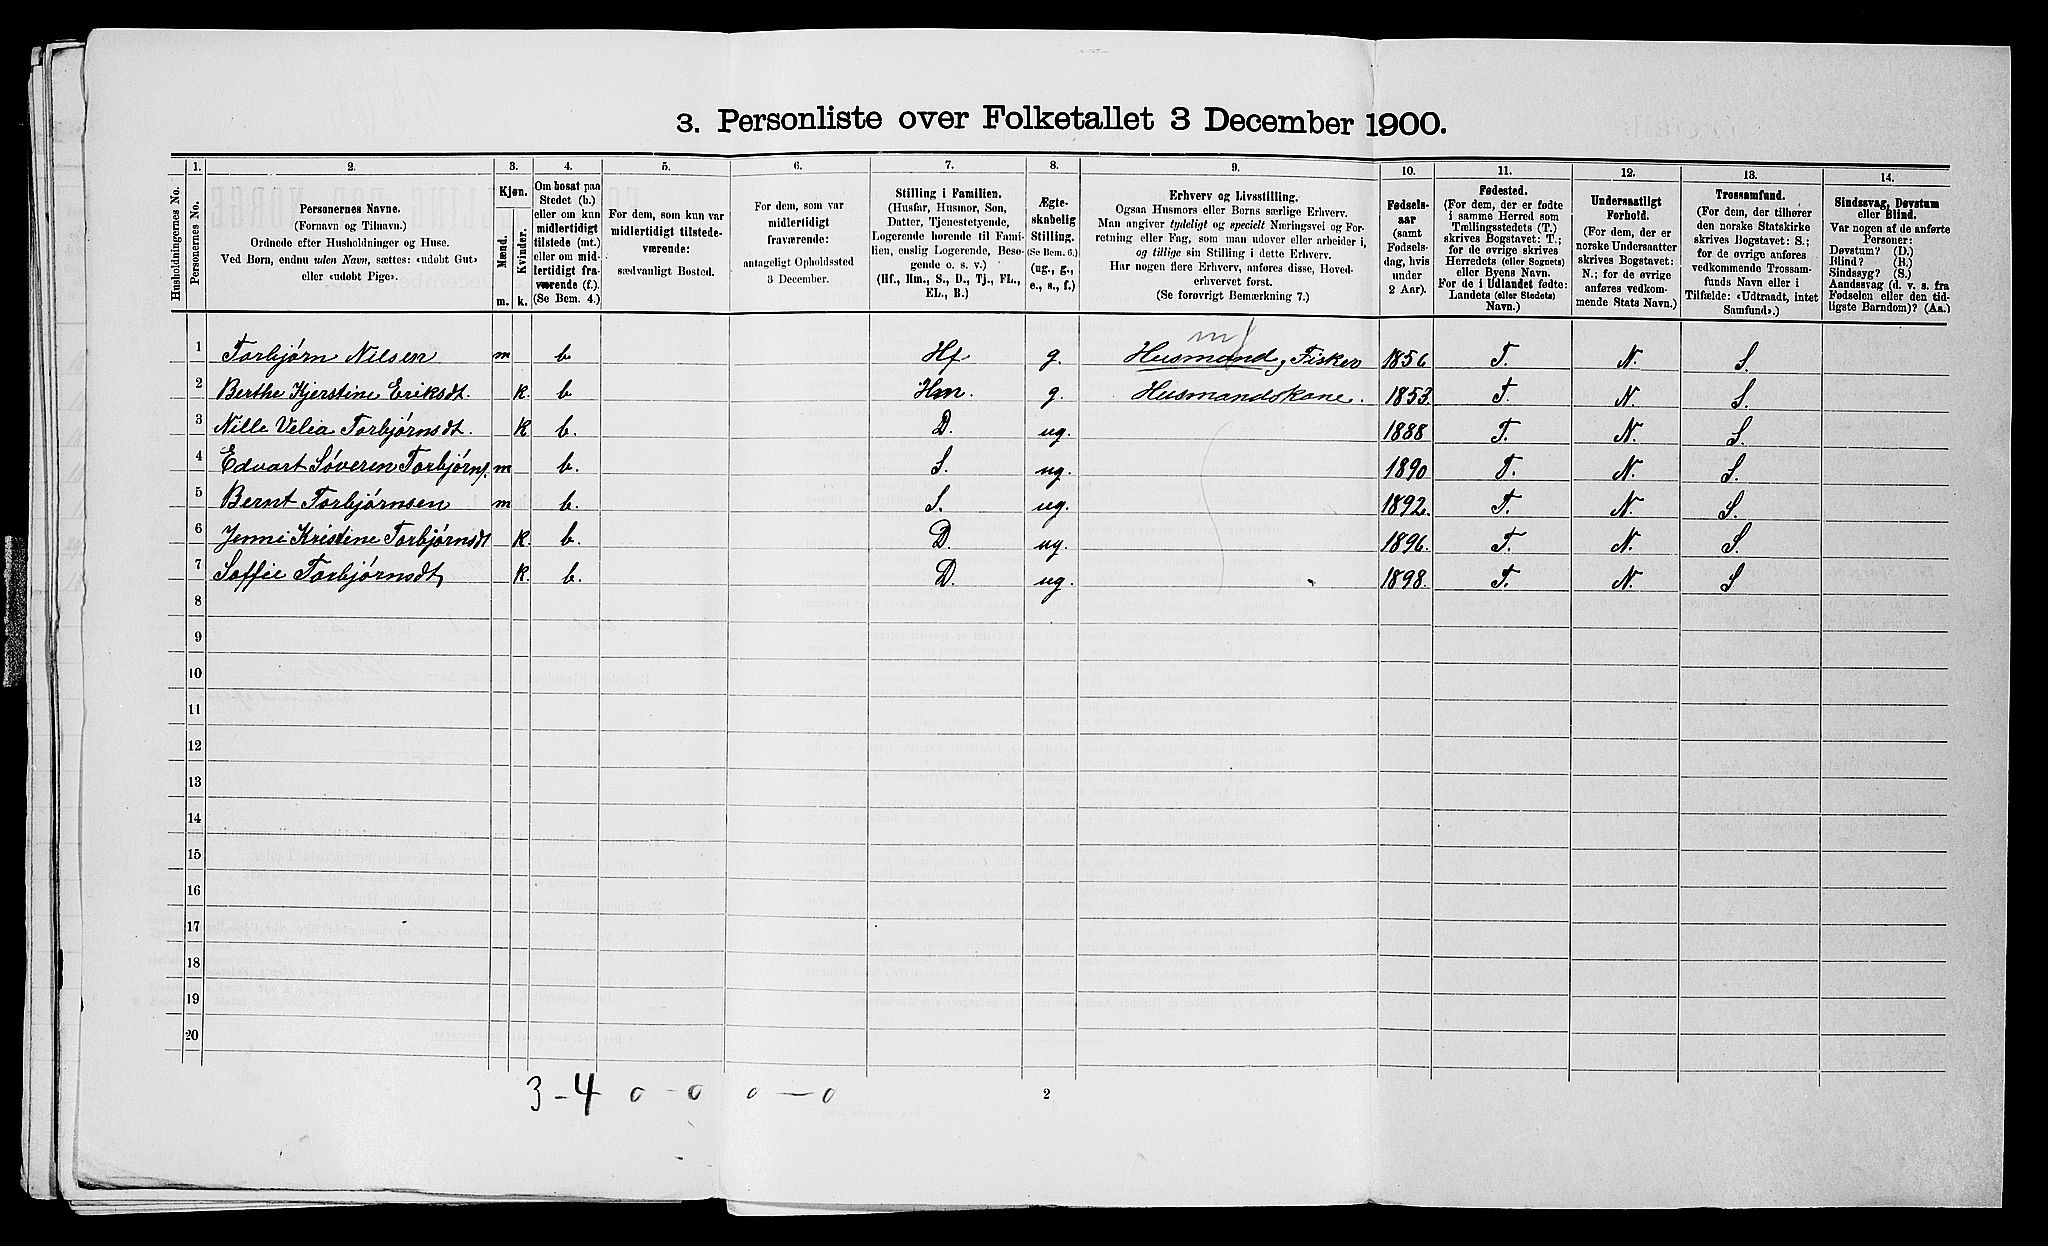 3. Personliste over Folketallet 3 December 1900.
1. 2. 3. 4. 5. 6. 7. 8. 9. 10. 11. 12. 13. 14.
Husholdningernes No.
Personernes No.
Personernes Navne.
(Fornavn og Tilnavn.)
Ordnede efter Husholdninger og Huse.
Ved Børn, endnu uden Navn, sættes: «udøbt Gut»
eller «udøbt Pige».
Kjøn.
Mænd.
Kvinder.
m. k.
Om bosat paa
Stedet (b.)
eller om kun
midlertidigt
tilstede (mt.)
eller om mid-
lertidigt fra-
værende (f.).
(Se Bem. 4.)
For dem, som kun var
midlertidigt tilstede-
værende:
sædvanligt Bosted.
For dem, som var
midlertidigt
fraværende:
antageligt Opholdssted
3 December.
Stilling i Familien.
(Husfar, Husmor, Søn,
Datter, Tjenestetyende,
Logerende hørende til Fami-
lien, enslig Logerende, Besø-
gende o. s. v.)
(Hf., Hm., S., D., Tj., FL.,
EL., B.)
Ægte-
skabelig
Stilling.
(Se Bem. 6.)
(ug., g.,
e., s., f.)
Erhverv og Livsstilling.
Ogsaa Husmors eller Børns særlige Erhverv.
Man angiver tydeligt og specielt Næringsvei og For-
retning eller Fag, som man udover eller arbeider i,
og tillige sin Stilling i dette Erhverv.
Har nogen flere Erhverv, anføres disse, Hoved-
erhvervet først.
(Se forøvrigt Bemærkning 7.)
Fødsels-
aar
(samt
Fødsels-
dag, hvis
under
2 Aar).
Fødested.
(For dem, der er fødte
i samme Herred som
Tællingsstedets (T.)
skrives Bogstavet: T.;
for de øvrige skrives
Herredets (eller Sognets)
eller Byens Navn.
For de i Udlandet fødte:
Landets (eller Stedets)
Navn.)
Undersaatligt
Forhold.
(For dem, der er
norske Undersaatter
skrives Bogstavet:
N.; for de øvrige
anføres vedkom-
mende Stats Navn.)
Trossamfund.
(For dem, der tilhører
den norske Statskirke
skrives Bogstavet: S.;
for de øvrige anføres
vedkommende Trossam-
funds Navn eller i
Tilfælde: «Udtraadt, intet
Samfund».)
Sindssvag, Døvstum
eller Blind.
Var nogen af de anførte
Personer:
Døvstum? (D.)
Blind? (B.)
Sindssyg? (S.)
Aandssvag (d. v. s. fra
Fødselen eller den tid-
ligste Barndom)? (Aa.)
1 Torbjørn Nilsen m b Hf g. Husmand, Fisker 1856 T. N. S.
2 Berthe Kjerstine Eriksdt. k. b Hm. g. Husmandskone. 1853. T. N. S.
3 Nille Velea Torbjørnsdt. k b. D. ug. 1888 T. N. S.
4 Edvart Søveren Torbjørns. m b. S. ug. 1890 T. N. S.
5 Bernt Torbjørnsen m b. S. ug. 1892. T. N. S.
6 Jenni Kristine Torbjørnsdt k. b. D. ug. 1896. T. N. S.
7 Soffie Torbjørnsdt k. b. D. ug. 1898. T. N. S
8
9
10
11
12
13
14
15
16
17
18
19
20
3-4 0-0 0-0 2